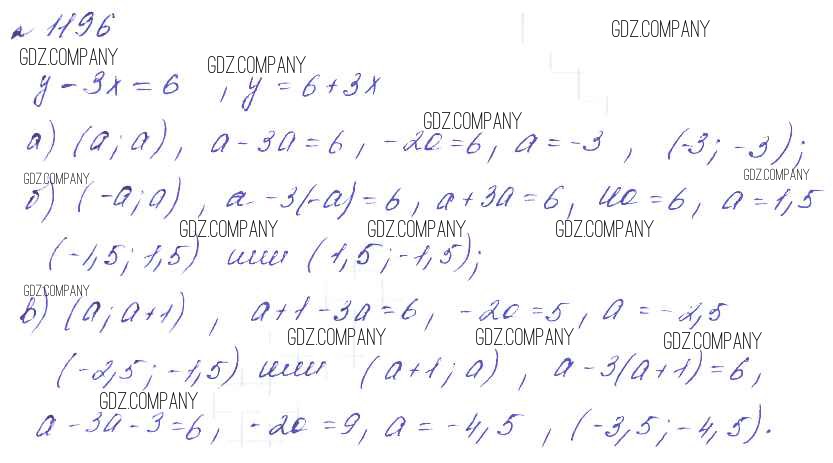 № 1196 GDZ.COMPANY
GDZ.COMPANY GDZ.COMPANY
y - 3x = 6 ; y = 6 + 3x
GDZ.COMPANY
а) (a; a), a - 3a = 6, -2a = 6, a = -3, (-3; -3);
GDZ.COMPANY GDZ.COMPANY
б) (-a; a), a - 3(-a) = 6, a + 3a = 6, 4a = 6, a = 1,5
GDZ.COMPANY GDZ.COMPANY GDZ.COMPANY
(-1,5; 1,5) или (1,5; -1,5);
GDZ.COMPANY
в) (a; a+1), a+1 - 3a = 6, -2a = 5, a = -2,5
GDZ.COMPANY GDZ.COMPANY GDZ.COMPANY
(-2,5; -1,5) или (a+1; a), a - 3(a+1) = 6,
GDZ.COMPANY
a - 3a - 3 = 6, -2a = 9, a = -4,5, (-3,5; -4,5).